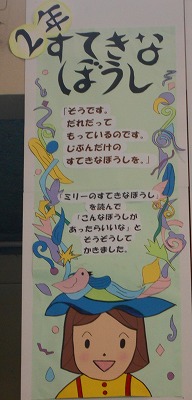 2年
すてきな
ぼうし
「そうです。
だれだって
もっているのです。
じぶんだけの
すてきなぼうしを。」
「ミリーのすてきなぼうし」
を読んで
「こんなぼうしが
あったらいいな」と
そうぞうして
かきました。